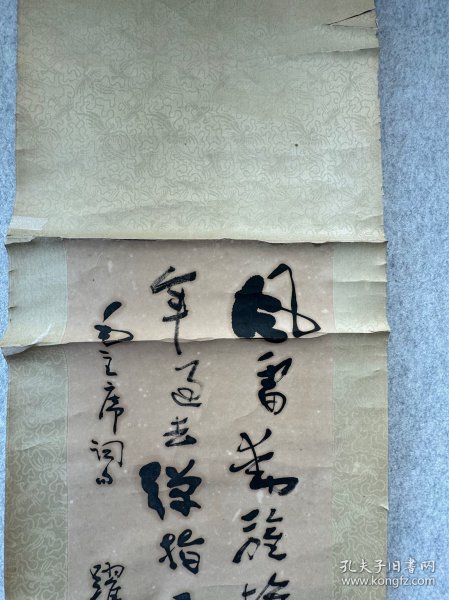 风雷动旌旗
年过去弹指
毛主席词句
耀
孔夫子旧书网
www.kongfz.com